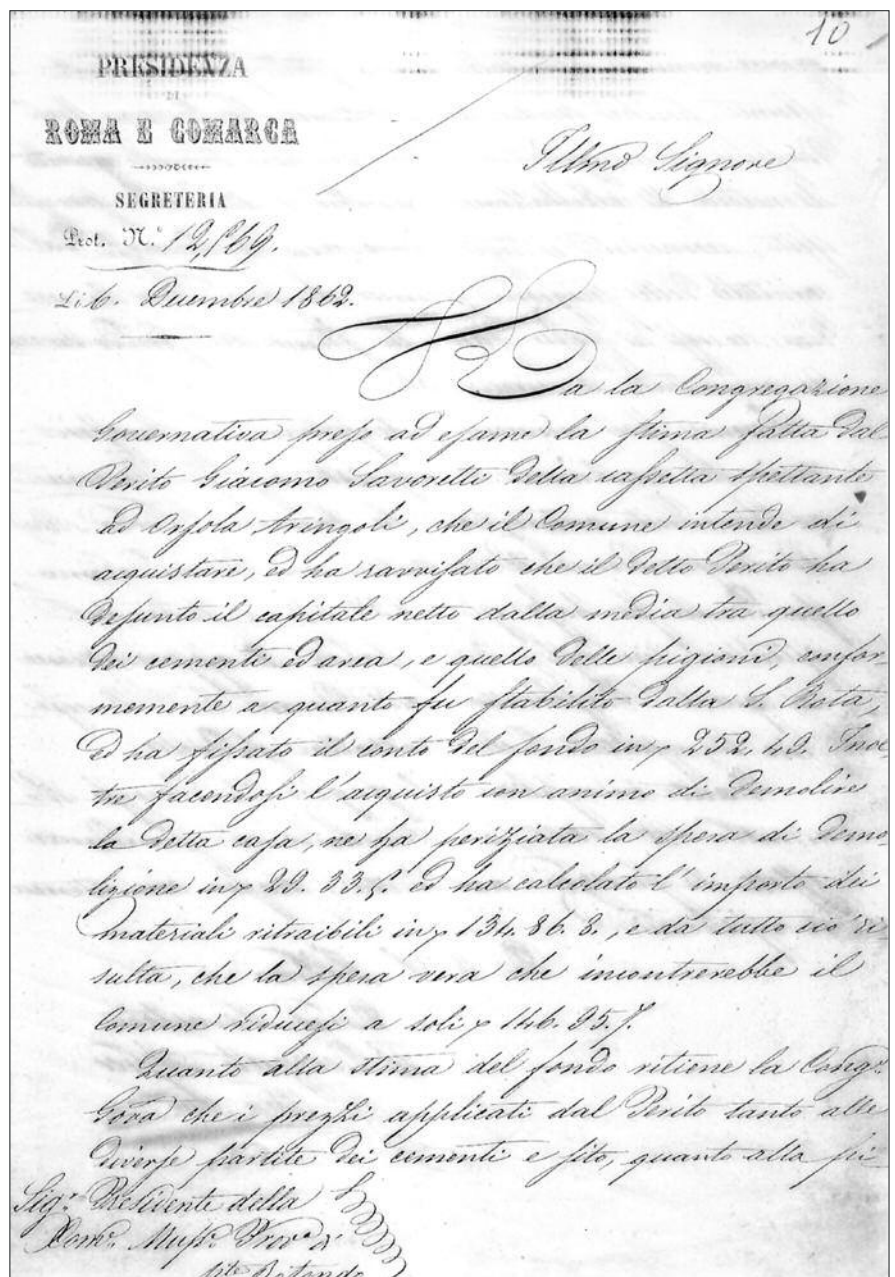 10
PRESIDENZA
DI
ROMA E COMARCA
SEGRETERIA
Prot. N.º 12,569.
Li 6. Decembre 1862.
Illmo Signore
Ha la Congregazione
Governativa preso ad esame la stima fatta dal
Perito Giacomo Savoretti della cassetta spettante
ad Orsola Aringoli, che il Comune intende di
acquistare, ed ha ravvisato che il detto Perito ha
desunto il capitale netto dalla media tra quello
dei cementi ed area, e quello delle pigioni, confor-
memente a quanto fu stabilito dalla S. Rota,
ed ha fissato il conto del fondo in 252. 49. Inol
tre facendosi l'acquisto con animo di demolire
la detta casa, ne ha periziata la spesa di demo
lizione in 29. 33. 5. ed ha calcolato l'importo dei
materiali ritraibili in 134. 86. 8., e da tutto ciò ri
sulta, che la spesa vera che incontrerebbe il
Comune riducesi a soli 146. 95. 7.
Quanto alla stima del fondo ritiene la Congne
Gova che i prezzi applicati dal Perito tanto alle
diverse partite dei cementi e sito, quanto alla pi-
Sigr Presidente della
Come Provva di
Rotondo